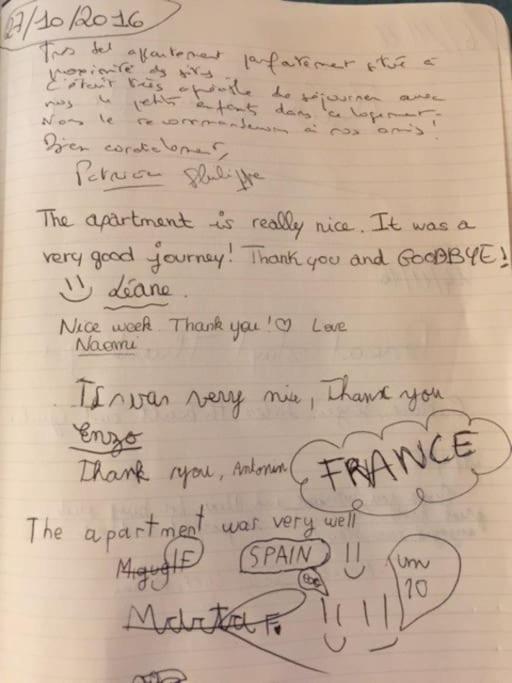 27/10/2016
Très bel appartement parfaitement situé à
proximité des sites.
C'était très agréable de séjourner avec
nos petits enfants dans ce logement.
Nous le recommanderons à nos amis!
Bien cordialement,
Patricia Philippe
The apartment is really nice. It was a
very good journey! Thank you and GOODBYE!
Léane.
Nice week. Thank you! ♡ Love
Naomi
It was very nice, Thank you
Enzo
Thank you, Antonin
FRANCE
The apartment was very well
Miguel F
SPAIN
un
10
Marta F.